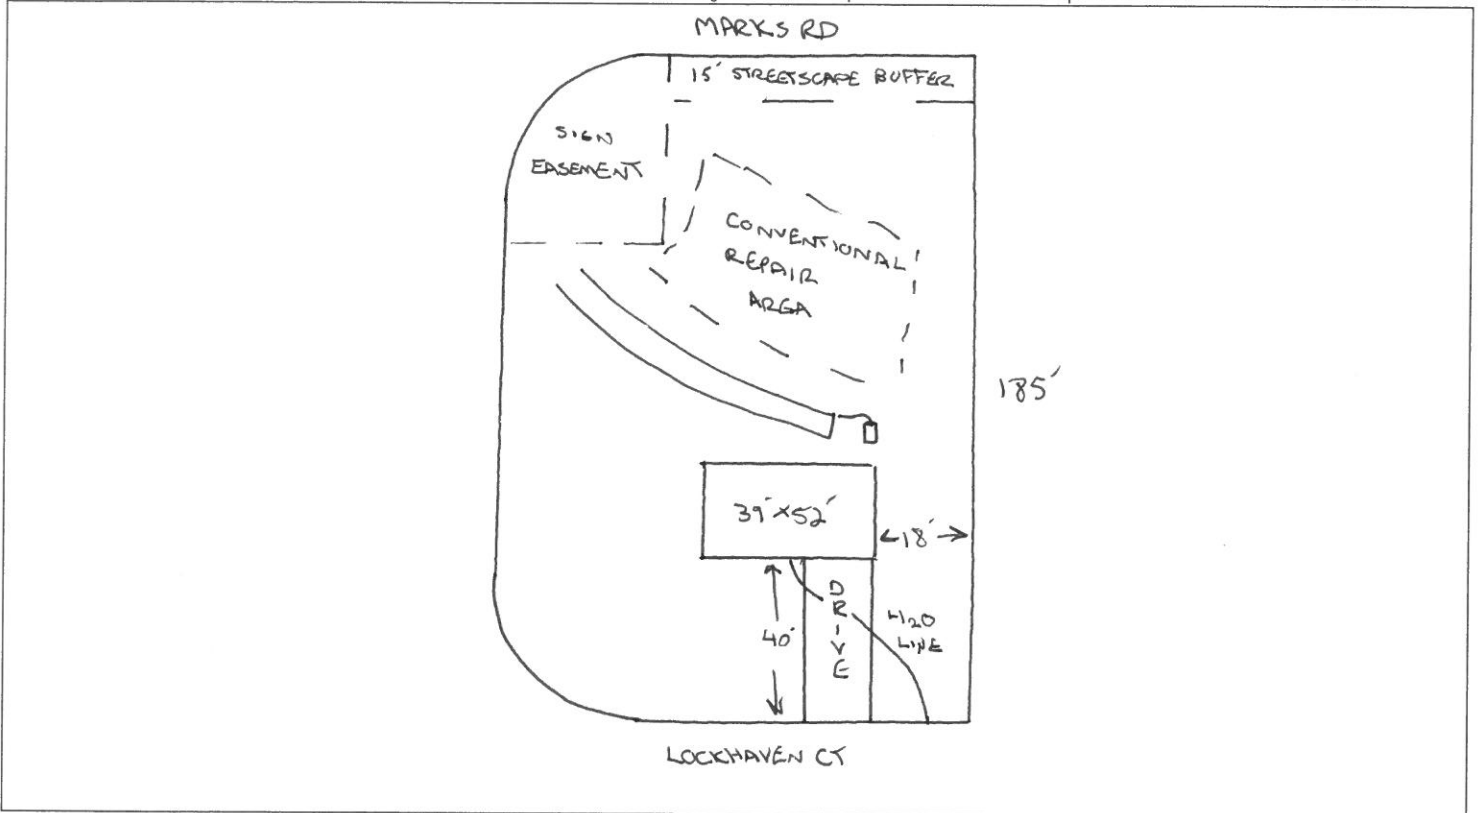 MARKS RD
15' STREETSCAPE BUFFER
SIGN
EASEMENT
CONVENTIONAL
REPAIR
AREA
185'
39'x52'
18'
40'
DRIVE
H2O
LINE
LOCKHAVEN CT